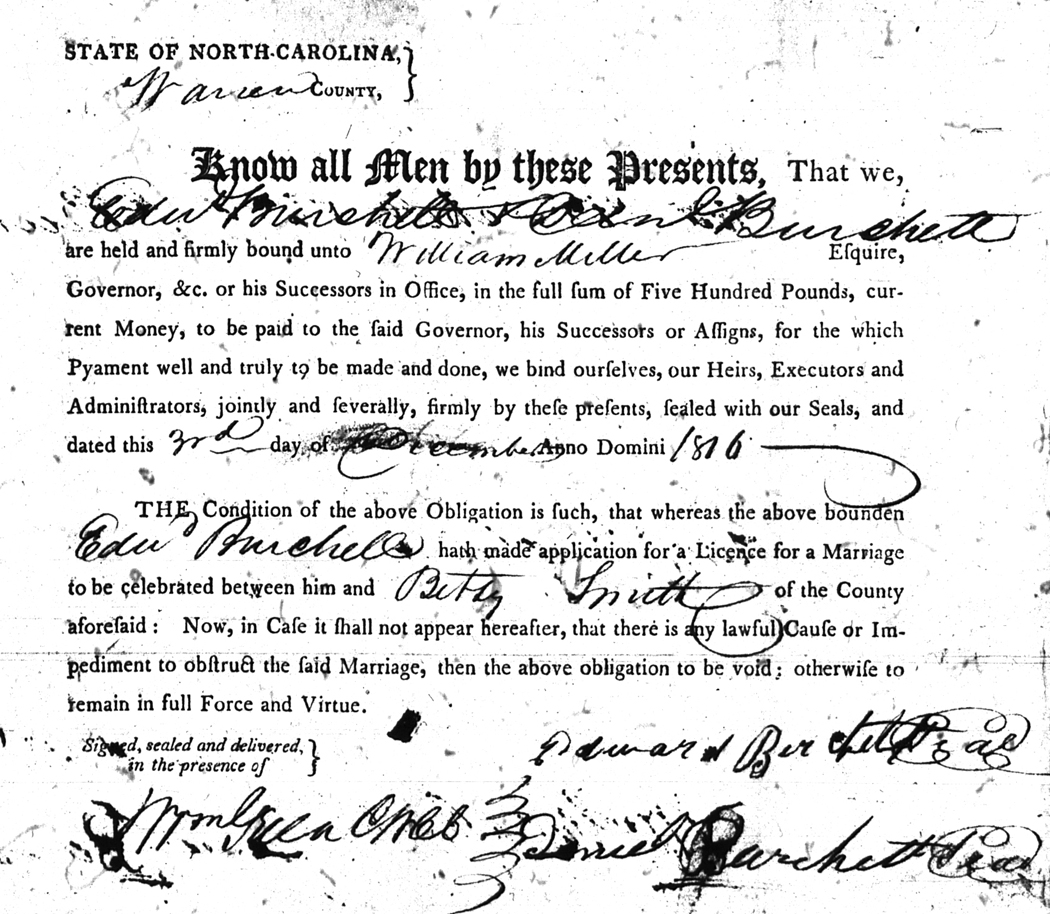 STATE OF NORTH-CAROLINA,
Warren COUNTY,
Know all Men by these Presents, That we,
Edwd Burchett & Danl. Burchett
are held and firmly bound unto William Miller Eſquire,
Governor, &c. or his Succeſſors in Office, in the full ſum of Five Hundred Pounds, cur-
rent Money, to be paid to the ſaid Governor, his Succeſſors or Aſſigns, for the which
Pyament well and truly to be made and done, we bind ourſelves, our Heirs, Executors and
Adminiſtrators, jointly and ſeverally, firmly by theſe preſents, ſealed with our Seals, and
dated this 3rd day of December Anno Domini 1816
THE Condition of the above Obligation is ſuch, that whereas the above bounden
Edwd Burchett hath made application for a Licence for a Marriage
to be celebrated between him and Betty Smith of the County
aforeſaid: Now, in Caſe it ſhall not appear hereafter, that there is any lawful Cauſe or Im-
pediment to obſtruct the ſaid Marriage, then the above obligation to be void; otherwiſe to
remain in full Force and Virtue.
Signed, sealed and delivered,
in the presence of
Edward Burchett Seal
Wm Green CWCC
Daniel Burchett Seal